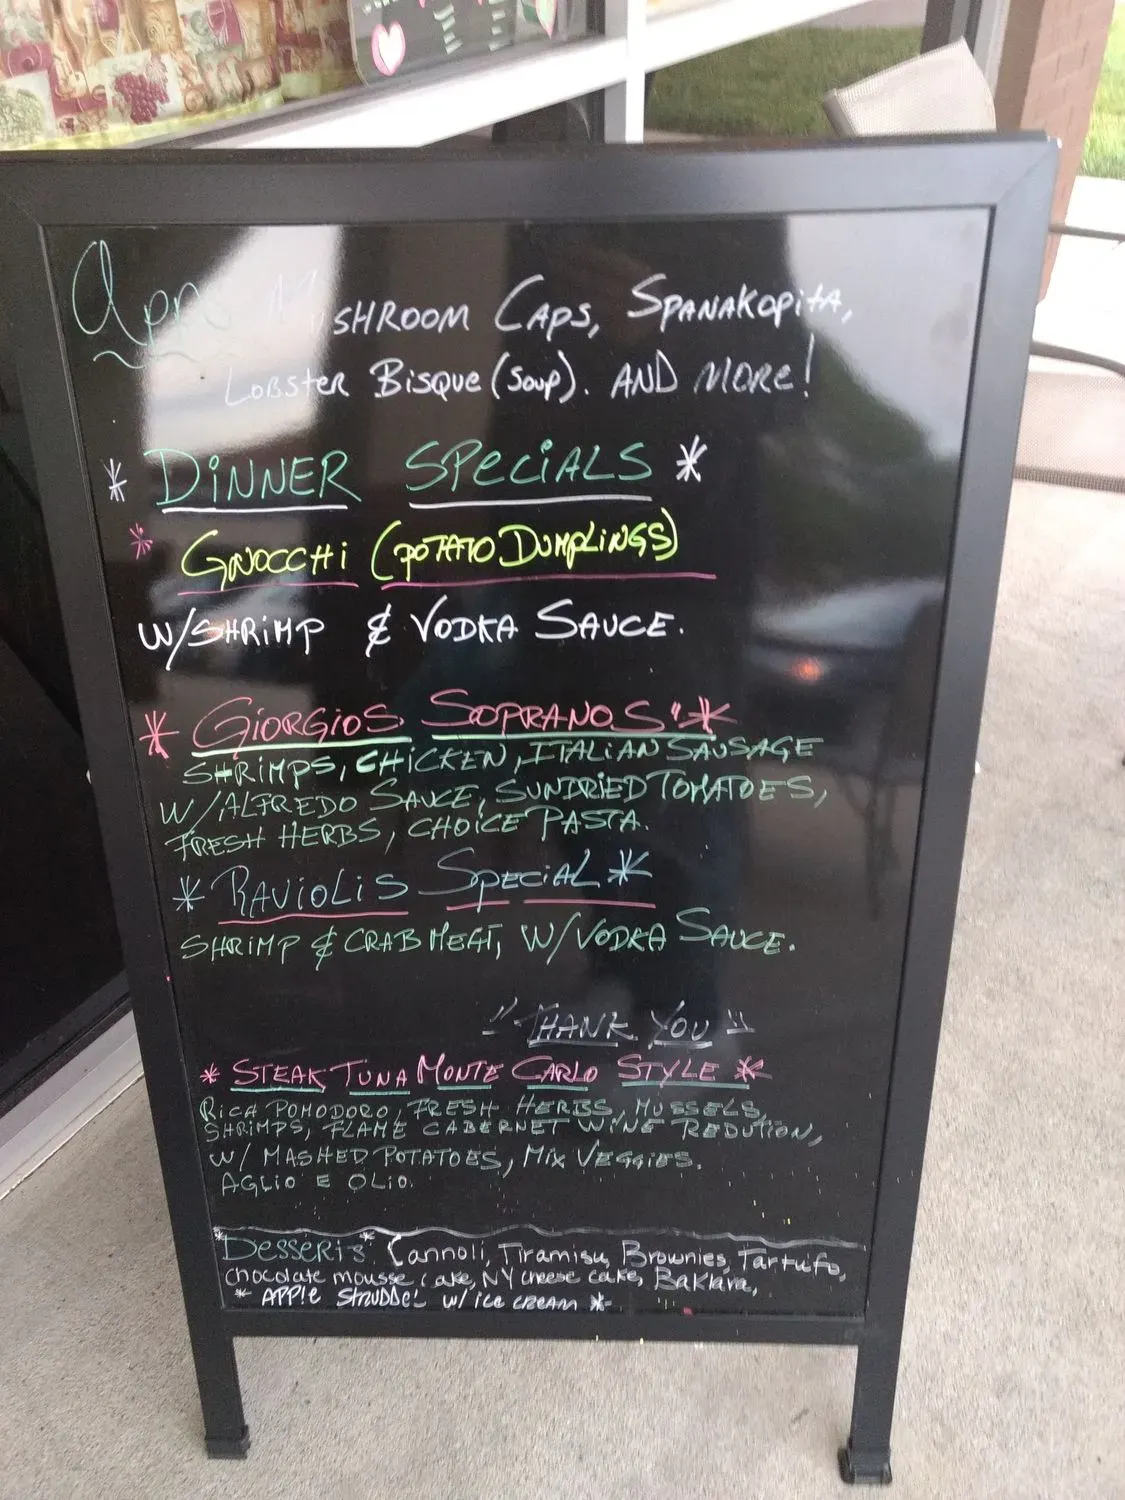 Apps Mushroom Caps, Spanakopita,
Lobster Bisque (Soup). AND MORE!
* DINNER SPECIALS *
* GNOCCHI (POTATO DUMPLINGS)
W/SHRIMP & VODKA SAUCE.
* GIORGIOS SOPRANOS" *
SHRIMPS, CHICKEN, ITALIAN SAUSAGE
W/ALFREDO SAUCE, SUNDRIED TOMATOES,
FRESH HERBS, CHOICE PASTA.
* RAVIOLIS SPECIAL *
SHRIMP & CRAB MEAT, W/VODKA SAUCE.
"THANK YOU"
* STEAK TUNA MONTE CARLO STYLE *
RICA POMODORO, FRESH HERBS, MUSSELS,
SHRIMPS, FLAME CABERNET WINE REDUTION,
W/ MASHED POTATOES, MIX VEGGIES.
AGLIO E OLIO.
*Desserts* Cannoli, Tiramisu, Brownies, Tartufo,
chocolate mousse cake, NY cheese cake, Baklava,
* APPle STRUDDEL W/ICE CREAM *